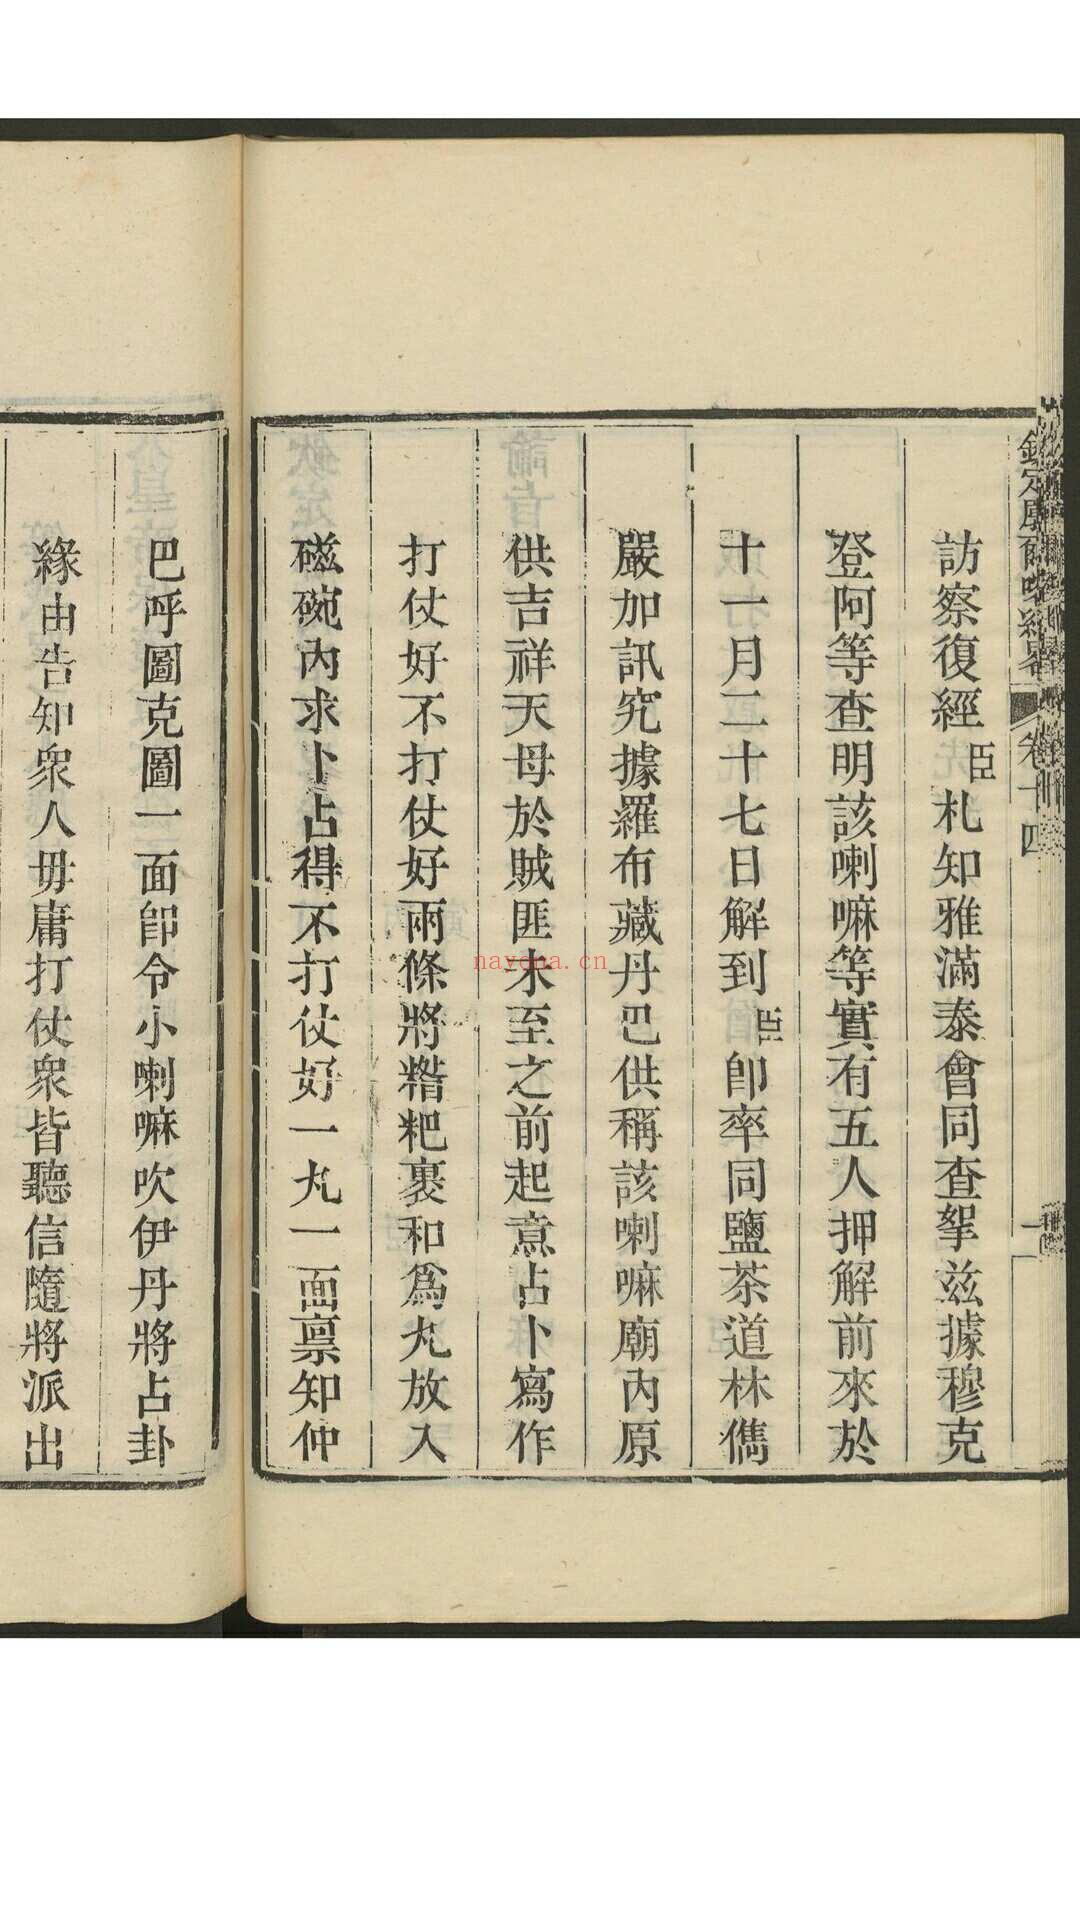 欽定廓爾喀紀畧 卷十四
訪察復經臣札知雅滿泰會同查拏兹據穆克
登阿等查明該喇嘛等實有五人押解前來於
十一月二十七日解到臣卽率同鹽茶道林儁
嚴加訊究據羅布藏丹巴供稱該喇嘛廟內原
供吉祥天母於賊匪未至之前起意占卜寫作
打仗好不打仗好兩條將糌粑裹和爲丸放入
磁碗內求卜占得不打仗好一丸一面禀知仲
巴呼圖克圖一面卽令小喇嘛吹伊丹將占卦
緣由告知衆人毋庸打仗衆皆聽信隨將派出
nayona.cn